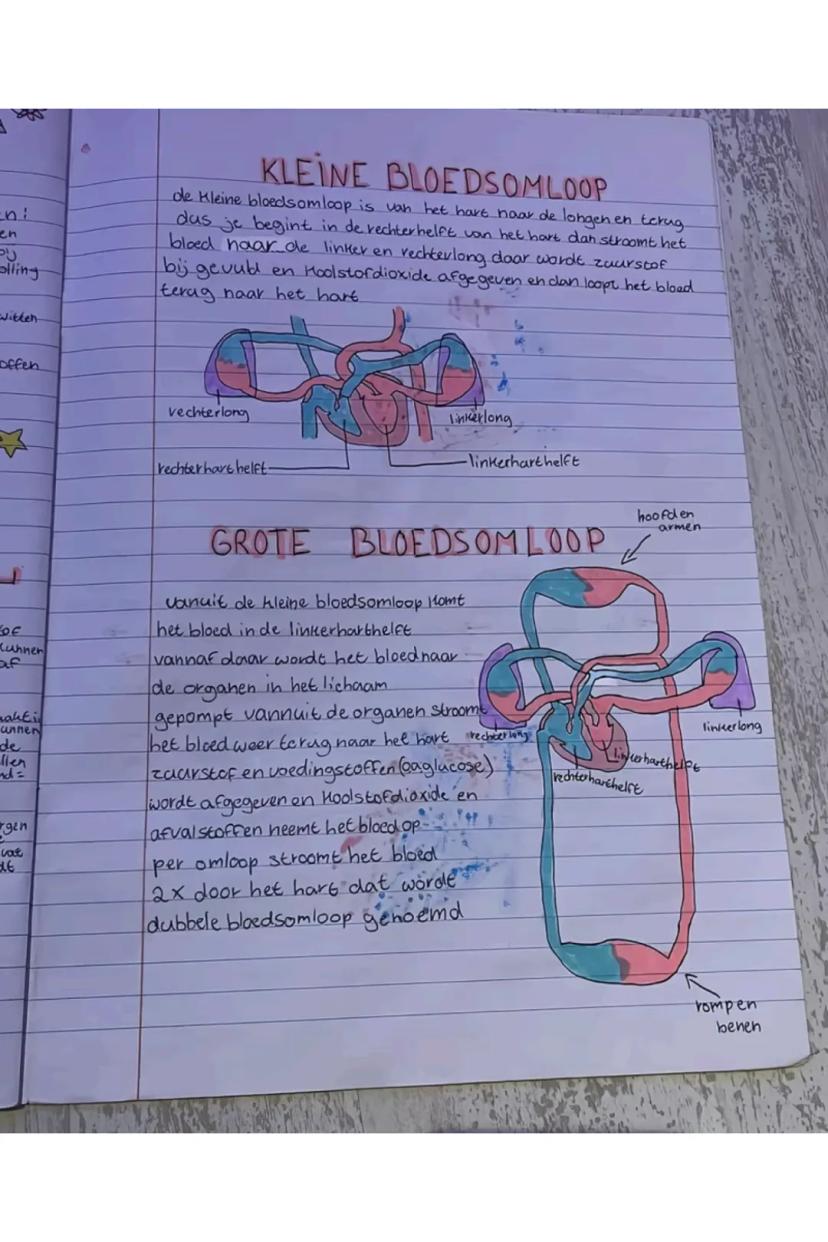 en:
en
olling
witten
offen
KLEINE BLOEDSOMLOOP
de kleine bloedsomloop is van het hart naar de longen en terug
dus je begint in de rechterhelft van het hart dan stroomt het
bloed naar de linker en rechterlong daar wordt zuurstof
bij gevuld en koolstofdioxide afgegeven en dan loopt het bloed
terug naar het hart
rechterlong
linkerlong
rechterharthelft
linkerharthelft
GROTE BLOEDSOMLOOP
hoofd en
armen
vanuit de kleine bloedsomloop komt
het bloed in de linkerharthelft
vannaf daar wordt het bloed naar
de organen in het lichaam
gepompt vannuit de organen stroomt
het bloed weer terug naar het hart
zuurstof en voedingstoffen (oaglucose)
wordt afgegeven en koolstofdioxide en
afvalstoffen neemt het bloed op
per omloop stroomt het bloed
2x door het hart dat wordt
dubbele bloedsomloop genoemd
rechterlong
linkerlong
linkerharthelft
rechterharthelft
romp en
benen
kunnen
af
unnen
de
llen
nd=
rgen
vat
dt